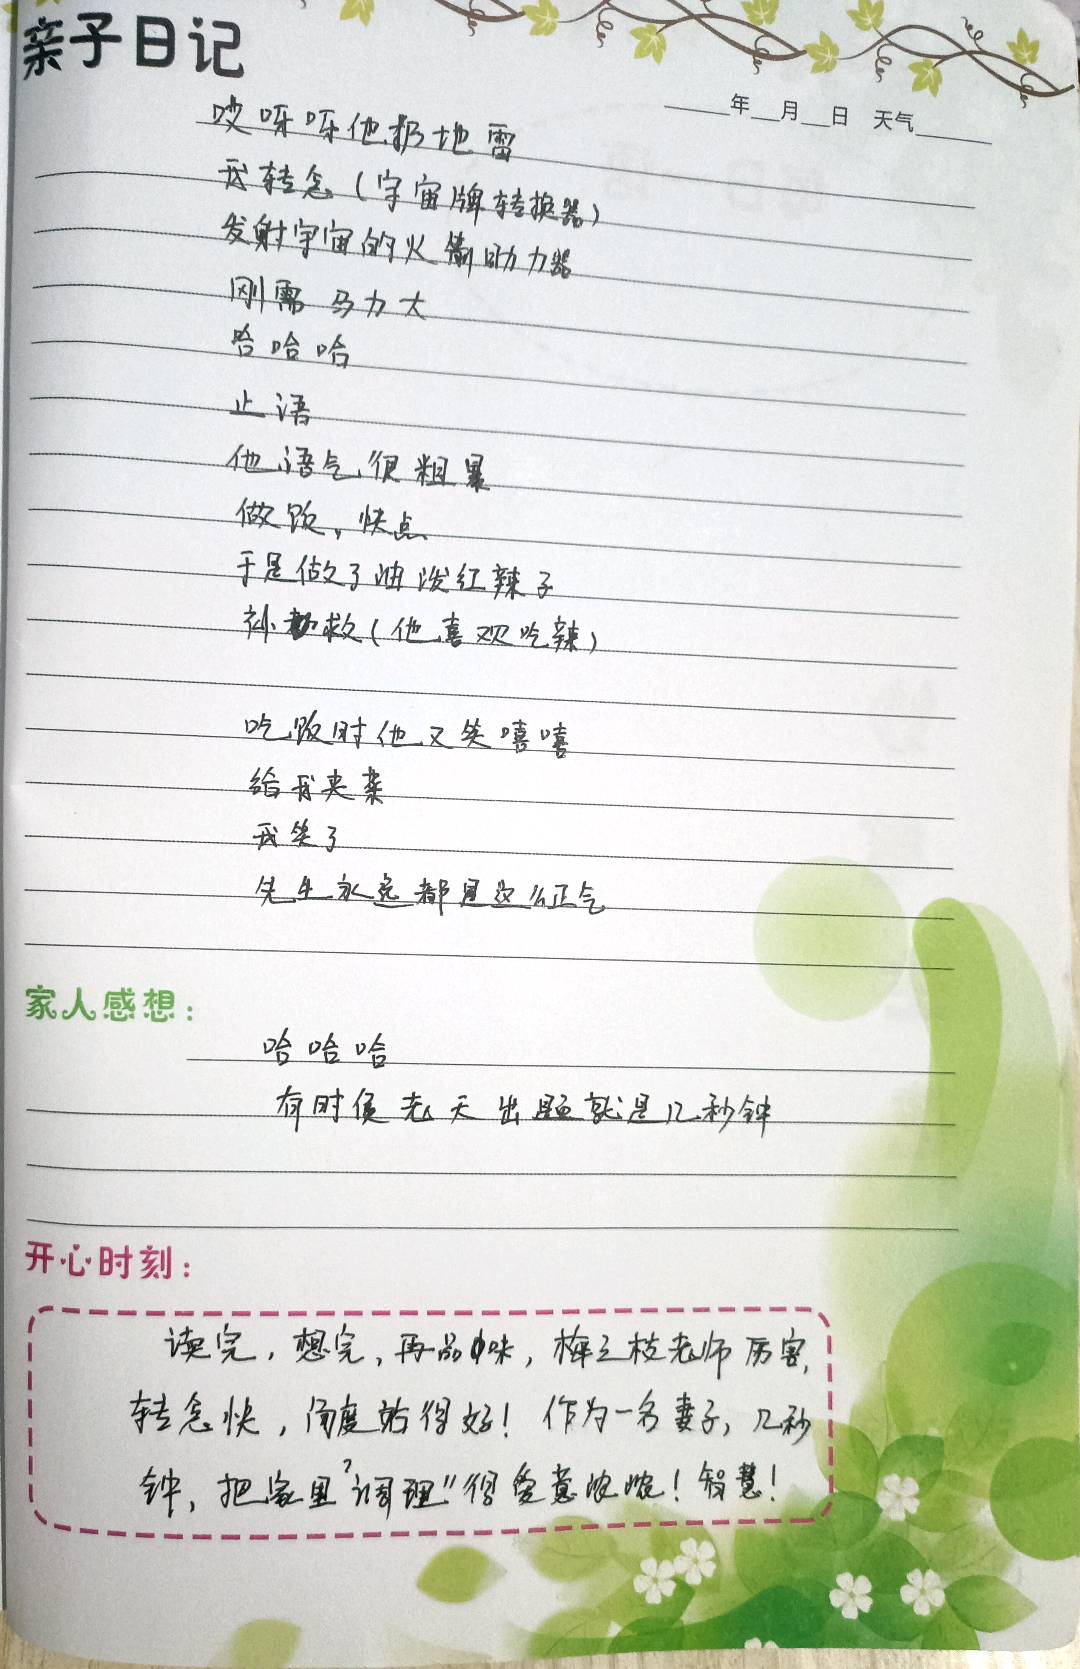 亲子日记
____年__月__日 天气____
哎呀呀他扔地雷
我转念(宇宙牌转换器)
发射宇宙的火箭助力器
刚需 马力大
哈哈哈
止语
他语气很粗暴
做饭，快点
于是做了油泼红辣子
补救(他喜欢吃辣)
吃饭时他又笑嘻嘻
给我夹菜
我笑了
先生永远都是这么正气
家人感想：
哈哈哈
有时候老天出题就是几秒钟
开心时刻：
读完，想完，再品味，梅三枝老师厉害，
转念快，角度站得好！作为一名妻子，几秒
钟，把家里"调理"得爱意浓浓！智慧！